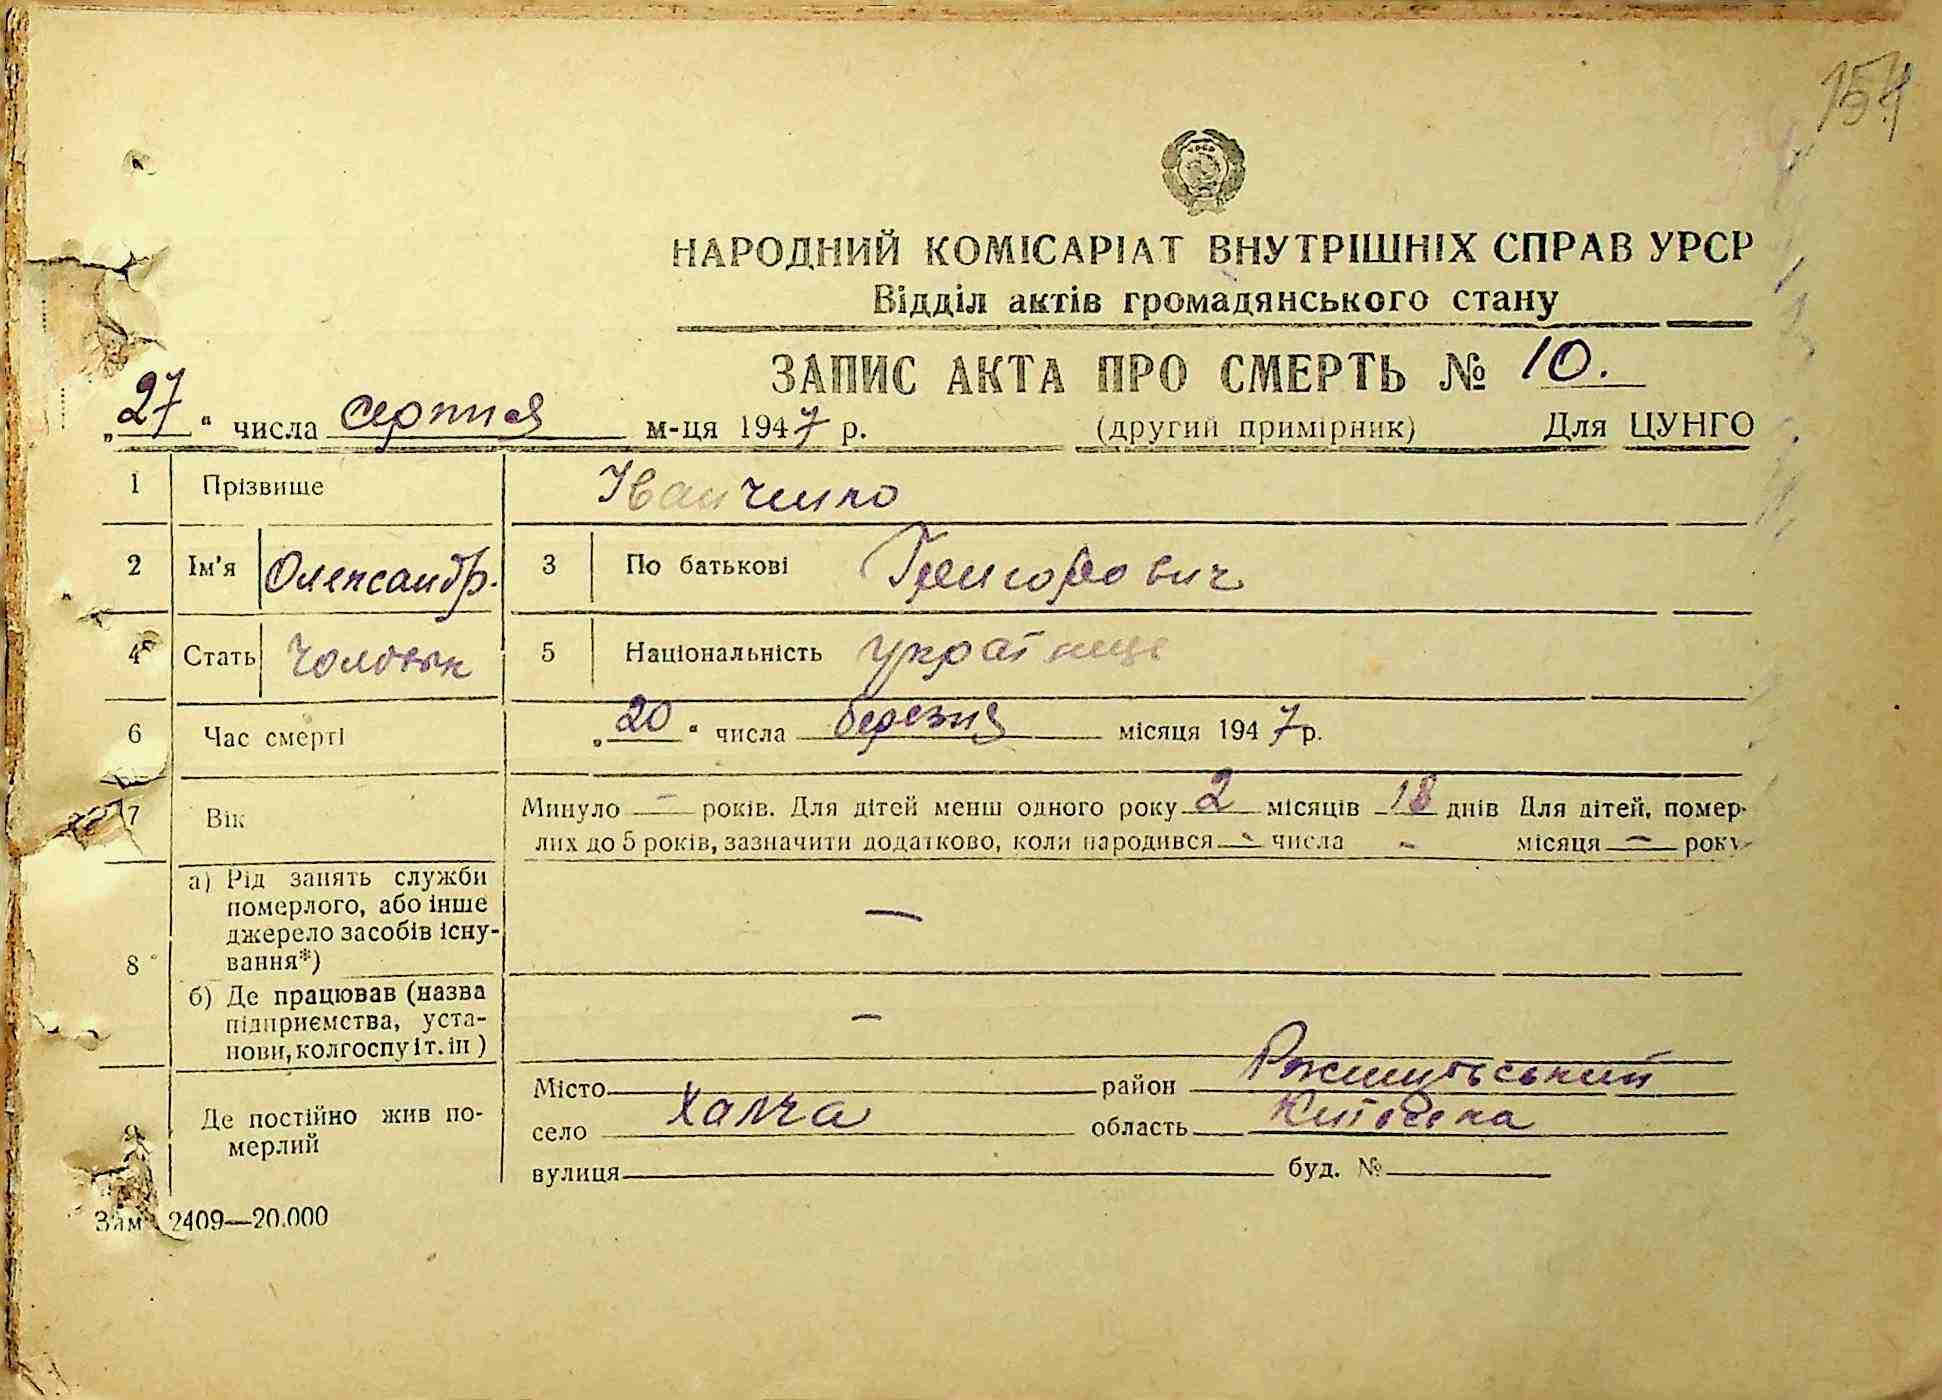 154
НАРОДНИЙ КОМІСАРІАТ ВНУТРІШНІХ СПРАВ УРСР
Відділ актів громадянського стану
ЗАПИС АКТА ПРО СМЕРТЬ № 10.
„27“ числа серпня м-ця 1947 р. (другий примірник) Для ЦУНГО
1 Прізвище Іванченко
2 Ім'я Олександр. 3 По батькові Григорович
4 Стать чоловік 5 Національність українець
6 Час смерті „20“ числа березня місяця 1947 р.
7 Вік Минуло — років. Для дітей менш одного року 2 місяців 18 днів Для дітей, помер-
лих до 5 років, зазначити додатково, коли народився - числа - місяця — року
8 а) Рід занять служби
померлого, або інше
джерело засобів існу-
вання*) —
б) Де працював (назва
підприємства, уста-
нови, колгоспу і т. ін) —
9 Де постійно жив по-
мерлий
Місто район
село Халча область Київська
вулиця буд. №
Зам 2409—20.000